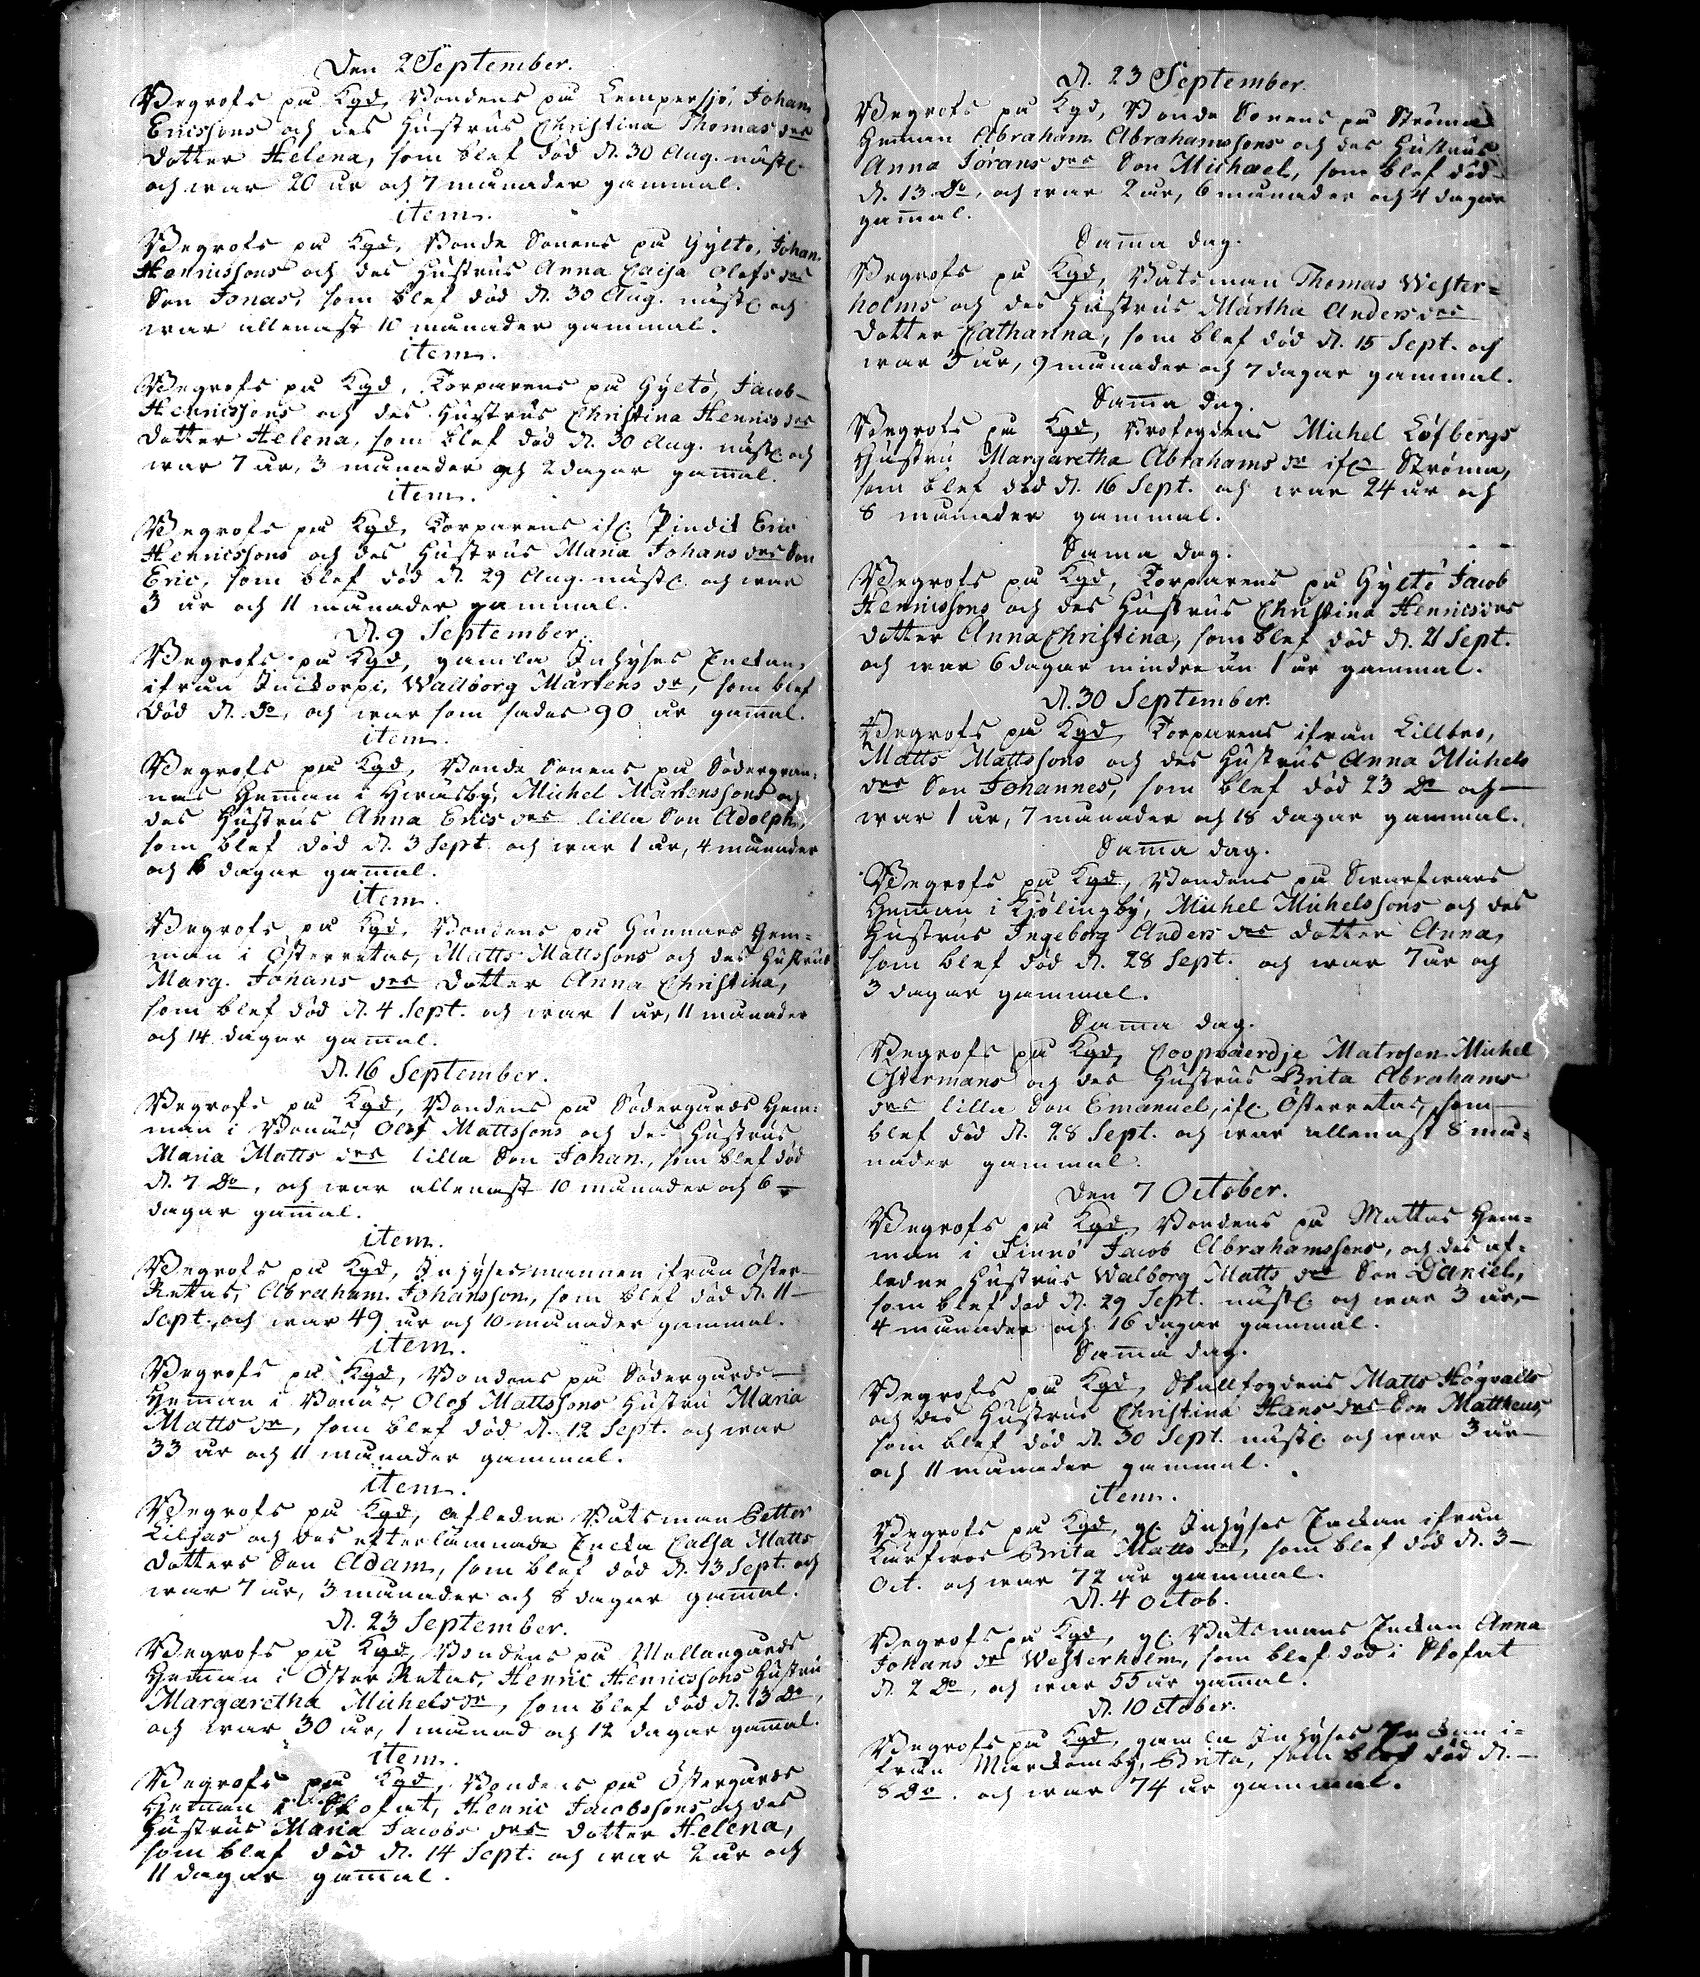 Den 2 September.
Begrofs på Kgd, Bondens på Lempersjö, Johan
Ericssons och des Hustrus Christina Thomas drs
dotter Helena, som blef död d. 30 Aug. nästl.
och war 20 år och 7 månader gammal.
item.
Begrofs på Kgd, Bonde Sonens på Gyltö, Johan
Henricssons och des Hustrus Anna Caisa Olofs drs
Son Jonas, som blef död d. 30 Aug. nästl. och
war allenast 10 månader gammal.
item.
Begrofs på Kgd, Torparens på Gyltö, Jacob
Henricssons och des Hustrus Christina Henrics drs
dotter Helena, som blef död d. 30 Aug. nästl. och
war 7 år, 3 månader och 2 dagar gam̄al.
item.
Begrofs på Kgd, Torparens ifr. Eric
Henricssons och des Hustrus Maria Johans drs Son
Eric, som blef död d. 29 Aug. nästl. och war
3 år och 11 månader gammal.
d. 9 September.
Begrofs på Kgd, gamla Inhyses Enckan
ifrån Wallborg Mårtens dr, som blef
död d. do, och war som sades 90 år gam̄al.
item.
Begrofs på Kgd, Bonde Sonens på Södergran=
nas Hem̄an i Hwasby, Michel Mårtenssons och
des Hustrus Anna Erics drs lilla Son Adolph,
som blef död d. 3 Sept. och war 1 år, 4 månader
och 16 dagar gam̄al.
item.
Begrofs på Kgd, Bondens på Gunnars Hem=
man i Österretas, Matts Mattssons och des Hustrus
Marg. Johans drs dotter Anna Christina,
som blef död d. 4 Sept. och war 1 år, 11 månader
och 14 dagar gam̄al.
d. 16 September.
Begrofs på Kgd, Bondens på Södergårds Hem=
man i Bonäs, Olof Mattssons och des Hustrus
Maria Matts drs lilla Son Johan, som blef död
d. 7 do, och war allenast 10 månader och 6
dagar gam̄al.
item.
Begrofs på Kgd, Inhysesmannen ifrån Öster
Retas, Abraham Johansson, som blef död d. 11
Sept., och war 49 år och 10 månader gammal.
item.
Begrofs på Kgd, Bondens på Södergårds
Hem̄an i Bonäs, Olof Mattssons Hustru Maria
Matts dr, som blef död d. 12 Sept. och war
33 år och 11 månader gammal.
item.
Begrofs på Kgd, afledne Båtsman Petter
Liljas och des efterlämnade Encka Caisa Matts
dotters Son Adam, som blef död d. 13 Sept. och
war 7 år, 3 månader och 8 dagar gam̄al.
d. 23 September.
Begrofs på Kgd, Bondens på Mellangårds
Hem̄an i Öster Retas, Henric Henricssons Hustru
Margaretha Michels dr, som blef död d. 13 do,
och war 30 år, 1 månad och 12 dagar gam̄al.
item.
Begrofs på Kgd, Bondens på Östergårds
Hem̄an i Skofat, Henric Jacobssons och des
Hustrus Maria Jacobs drs dotter Helena,
som blef död d. 14 Sept. och war 2 år och
11 dagar gam̄al.
d. 23 September.
Begrofs på Kgd, Bonde Sonens på Ström̄a
Hem̄an Abraham Abrahamssons och des Hustrus
Anna Jörans drs Son Michael, som blef död
d. 13 do, och war 2 år, 6 månader och 4 dagar
gam̄al.
Sam̄a dag.
Begrofs på Kgd, Båtsman Thomas Wester=
holms och des Hustrus Märtha Anders drs
dotter Catharina, som blef död d. 15 Sept. och
war 3 år, 9 månader och 7 dagar gammal.
Sam̄a dag.
Begrofs på Kgd, Brofogdens Michel Löfbergs
Hustru Margaretha Abrahams dr ifr. Ströma,
som blef död d. 16 Sept. och war 24 år och
8 månader gammal.
Sama dag.
Begrofs på Kgd, Torparens på Gyltö Jacob
Henricssons och des Hustrus Christina Henrics drs
dotter Anna Christina, som blef död d. 21 Sept.
och war 6 dagar mindre än 1 år gammal.
d. 30 September.
Begrofs på Kgd, Torparens ifrån Lillbro,
Matts Mattssons och des Hustrus Anna Michels
drs Son Johannes, som blef död 23 do och
war 1 år, 7 månader och 18 dagar gammal.
Sam̄a dag.
Begrofs på Kgd, Bondens på Swarfwars
Hem̄an i Kjölingby, Michel Michelssons och des
Hustrus Ingeborg Anders drs dotter Anna,
som blef död d. 28 Sept. och war 7 år och
3 dagar gammal.
Sam̄a dag.
Begrofs på Kgd, Coopvaerdje Matrosen Michel
Östermans och des Hustrus Brita Abrahams
drs lilla Son Emanuel, ifr. Österretas, som
blef död d. 28 Sept. och war allenast 8 må=
nader gammal.
Den 7 October.
Begrofs på Kgd, Bondens på Mattas Hem=
man i Finnö Jacob Abrahamssons, och des af=
ledne Hustrus Walborg Matts drs Son Daniel,
som blef död d. 29 Sept. nästl. och war 3 år,
4 månader och 16 dagar gammal.
Sam̄a dag.
Begrofs på Kgd, Skallfogdens Matts Högvalls
och des Hustrus Christina Hans drs Son Mattheus,
som blef död d. 30 Sept. nästl. och war 3 år
och 11 månader gammal.
item.
Begrofs på Kgd, gl. Inhyses Enckan ifrån
Brita Matts dr, som blef död d. 3
Oct. och war 72 år gammal.
d. 4 Octob.
Begrofs på Kgd, gl. Båtsmans Enckan Anna
Johans dr Westerholm, som blef död i Skofat
d. 2 do, och war 55 år gam̄al.
d. 10 October.
Begrofs på Kgd, gamla Inhyses Enckan i=
från Brita, som blef död d.
8 do. och war 74 år gammal.